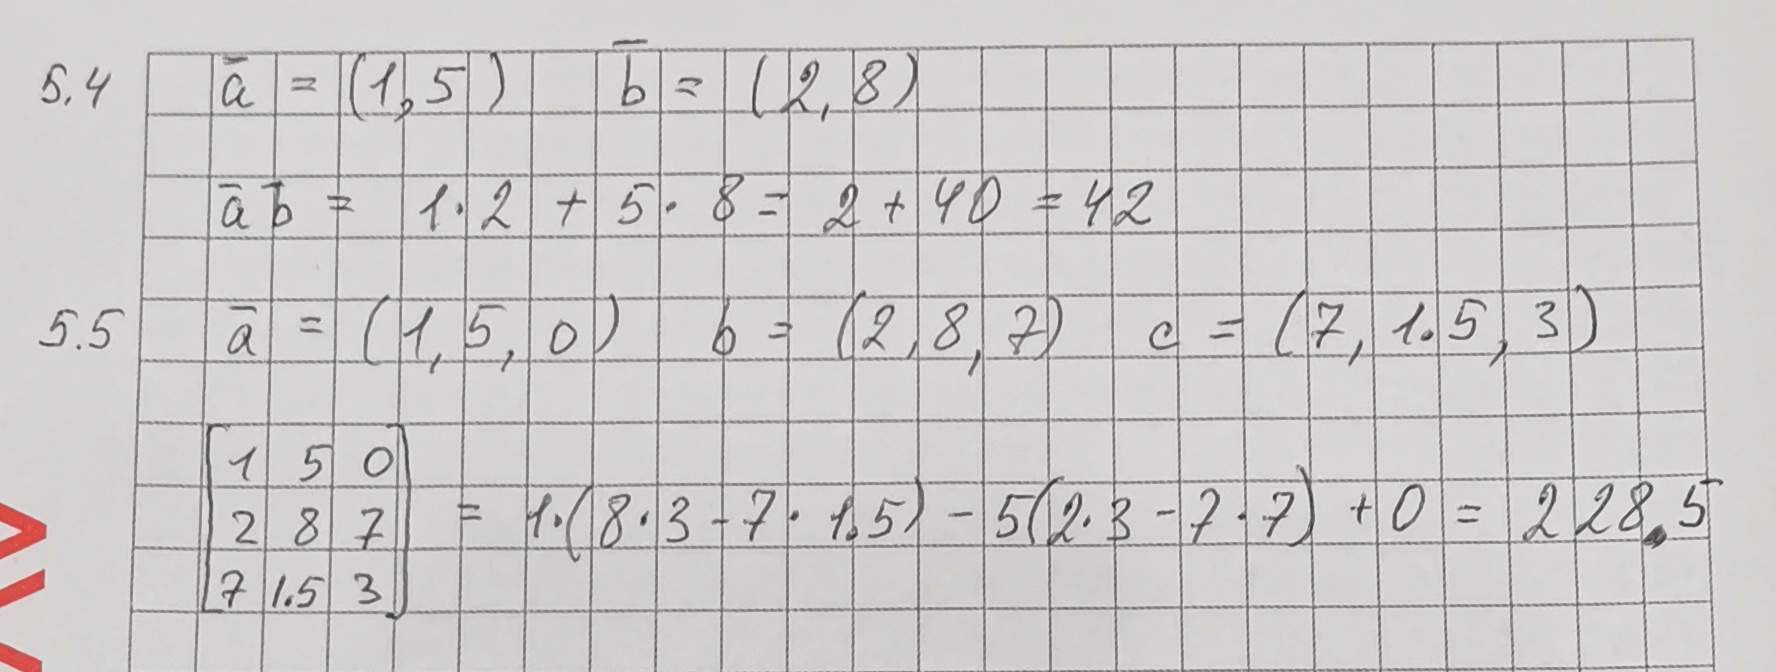 5.4 a̅ = (1,5) b̅ = (2,8)
a̅ b̅ = 1·2 + 5·8 = 2 + 40 = 42
5.5 a̅ = (1,5,0) b = (2,8,7) c = (7,1.5,3)
[1 5 0
2 8 7
7 1.5 3] = 1·(8·3-7·1.5) - 5(2·3-7·7) + 0 = 228.5